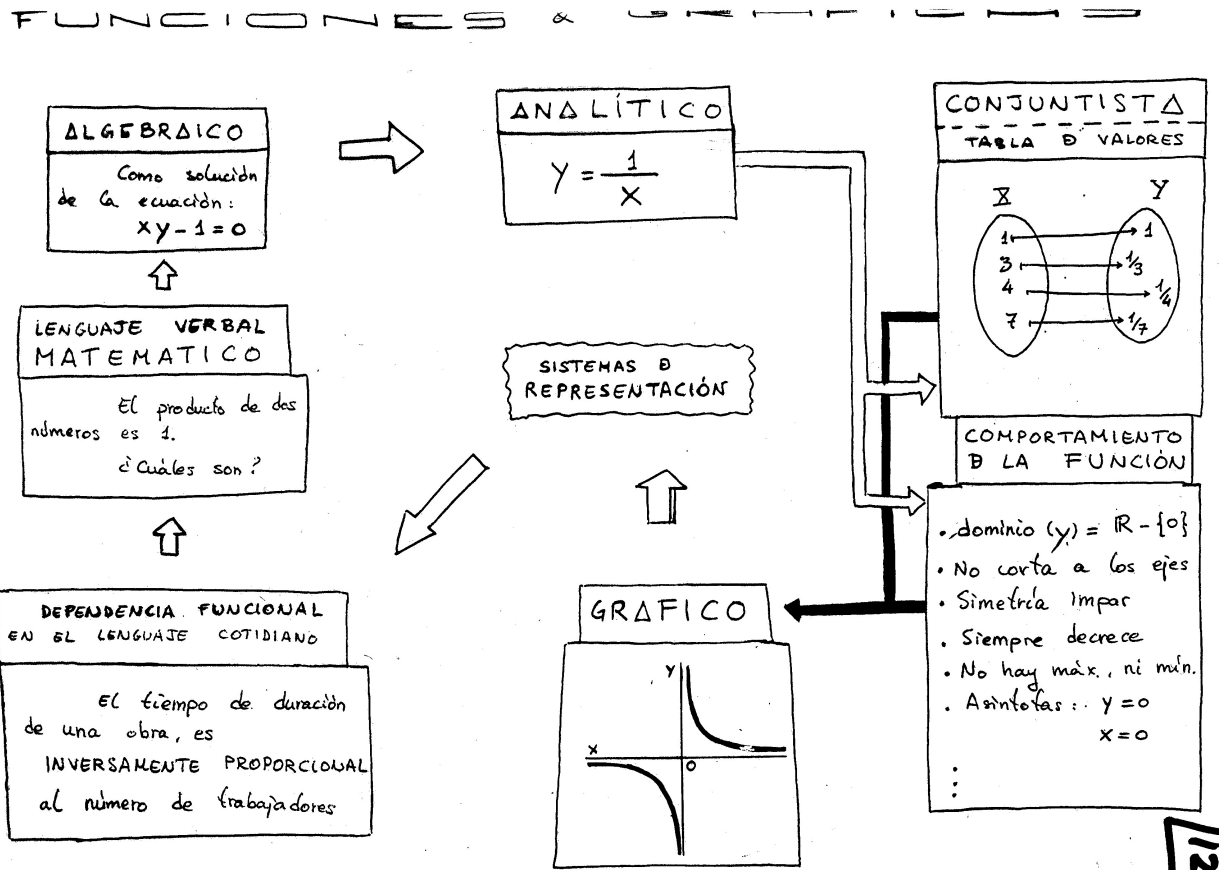 FUNCIONES & GRAFICAS
ALGEBRAICO
Como solución
de la ecuación:
xy-1=0
ANALÍTICO
Y = 1/X
CONJUNTISTA
TABLA D VALORES
X Y
1 1
3 1/3
4 1/4
7 1/7
LENGUAJE VERBAL
MATEMATICO
El producto de dos
números es 1.
¿Cuáles son?
SISTEMAS D
REPRESENTACIÓN
COMPORTAMIENTO
D LA FUNCIÓN
• dominio (y) = ℝ-{0}
• No corta a los ejes
• Simetría impar
• Siempre decrece
• No hay máx., ni mín.
• Asíntotas: y=0
x=0
⋮
DEPENDENCIA FUNCIONAL
EN EL LENGUAJE COTIDIANO
El tiempo de duración
de una obra, es
INVERSAMENTE PROPORCIONAL
al número de trabajadores
GRAFICO
Y
X
0
12